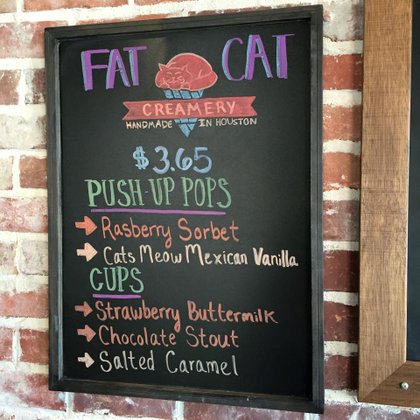 FAT CAT
CREAMERY
HANDMADE IN HOUSTON
$3.65
PUSH-UP POPS
Rasberry Sorbet
Cats Meow Mexican Vanilla
CUPS
Strawberry Buttermilk
Chocolate Stout
Salted Caramel